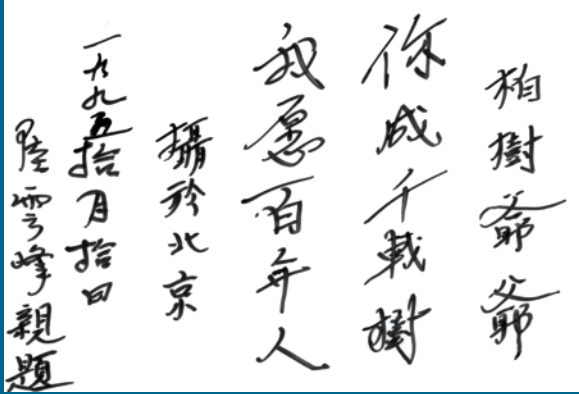 柏樹爺爺
你成千載樹
我愿百年人
攝於北京
一九九五拾月拾日
陸雲峰親題